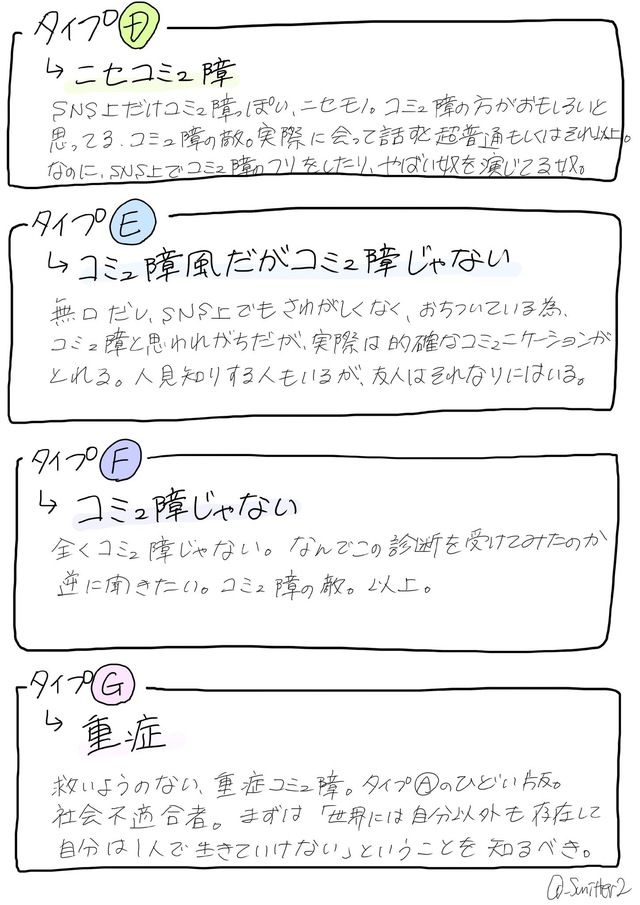 タイプⒹ
↳ ニセコミュ障
SNS上だけコミュ障っぽい、ニセモノ。コミュ障の方がおもしろいと
思ってる、コミュ障の敵。実際に会って話すと超普通もしくはそれ以上。
なのに、SNS上でコミュ障のフリをしたり、やばい奴を演じてる奴。
タイプⒺ
↳ コミュ障風だがコミュ障じゃない
無口だし、SNS上でもさわがしくなく、おちついている為、
コミュ障と思われがちだが、実際は的確なコミュニケーションが
とれる。人見知りする人もいるが、友人はそれなりにはいる。
タイプⒻ
↳ コミュ障じゃない
全くコミュ障じゃない。なんでこの診断を受けてみたのか
逆に聞きたい。コミュ障の敵。以上。
タイプⒼ
↳ 重症
救いようのない、重症コミュ障。タイプⒶのひどい版。
社会不適合者。まずは「世界には自分以外も存在して
自分は1人で生きていけない」ということを知るべき。